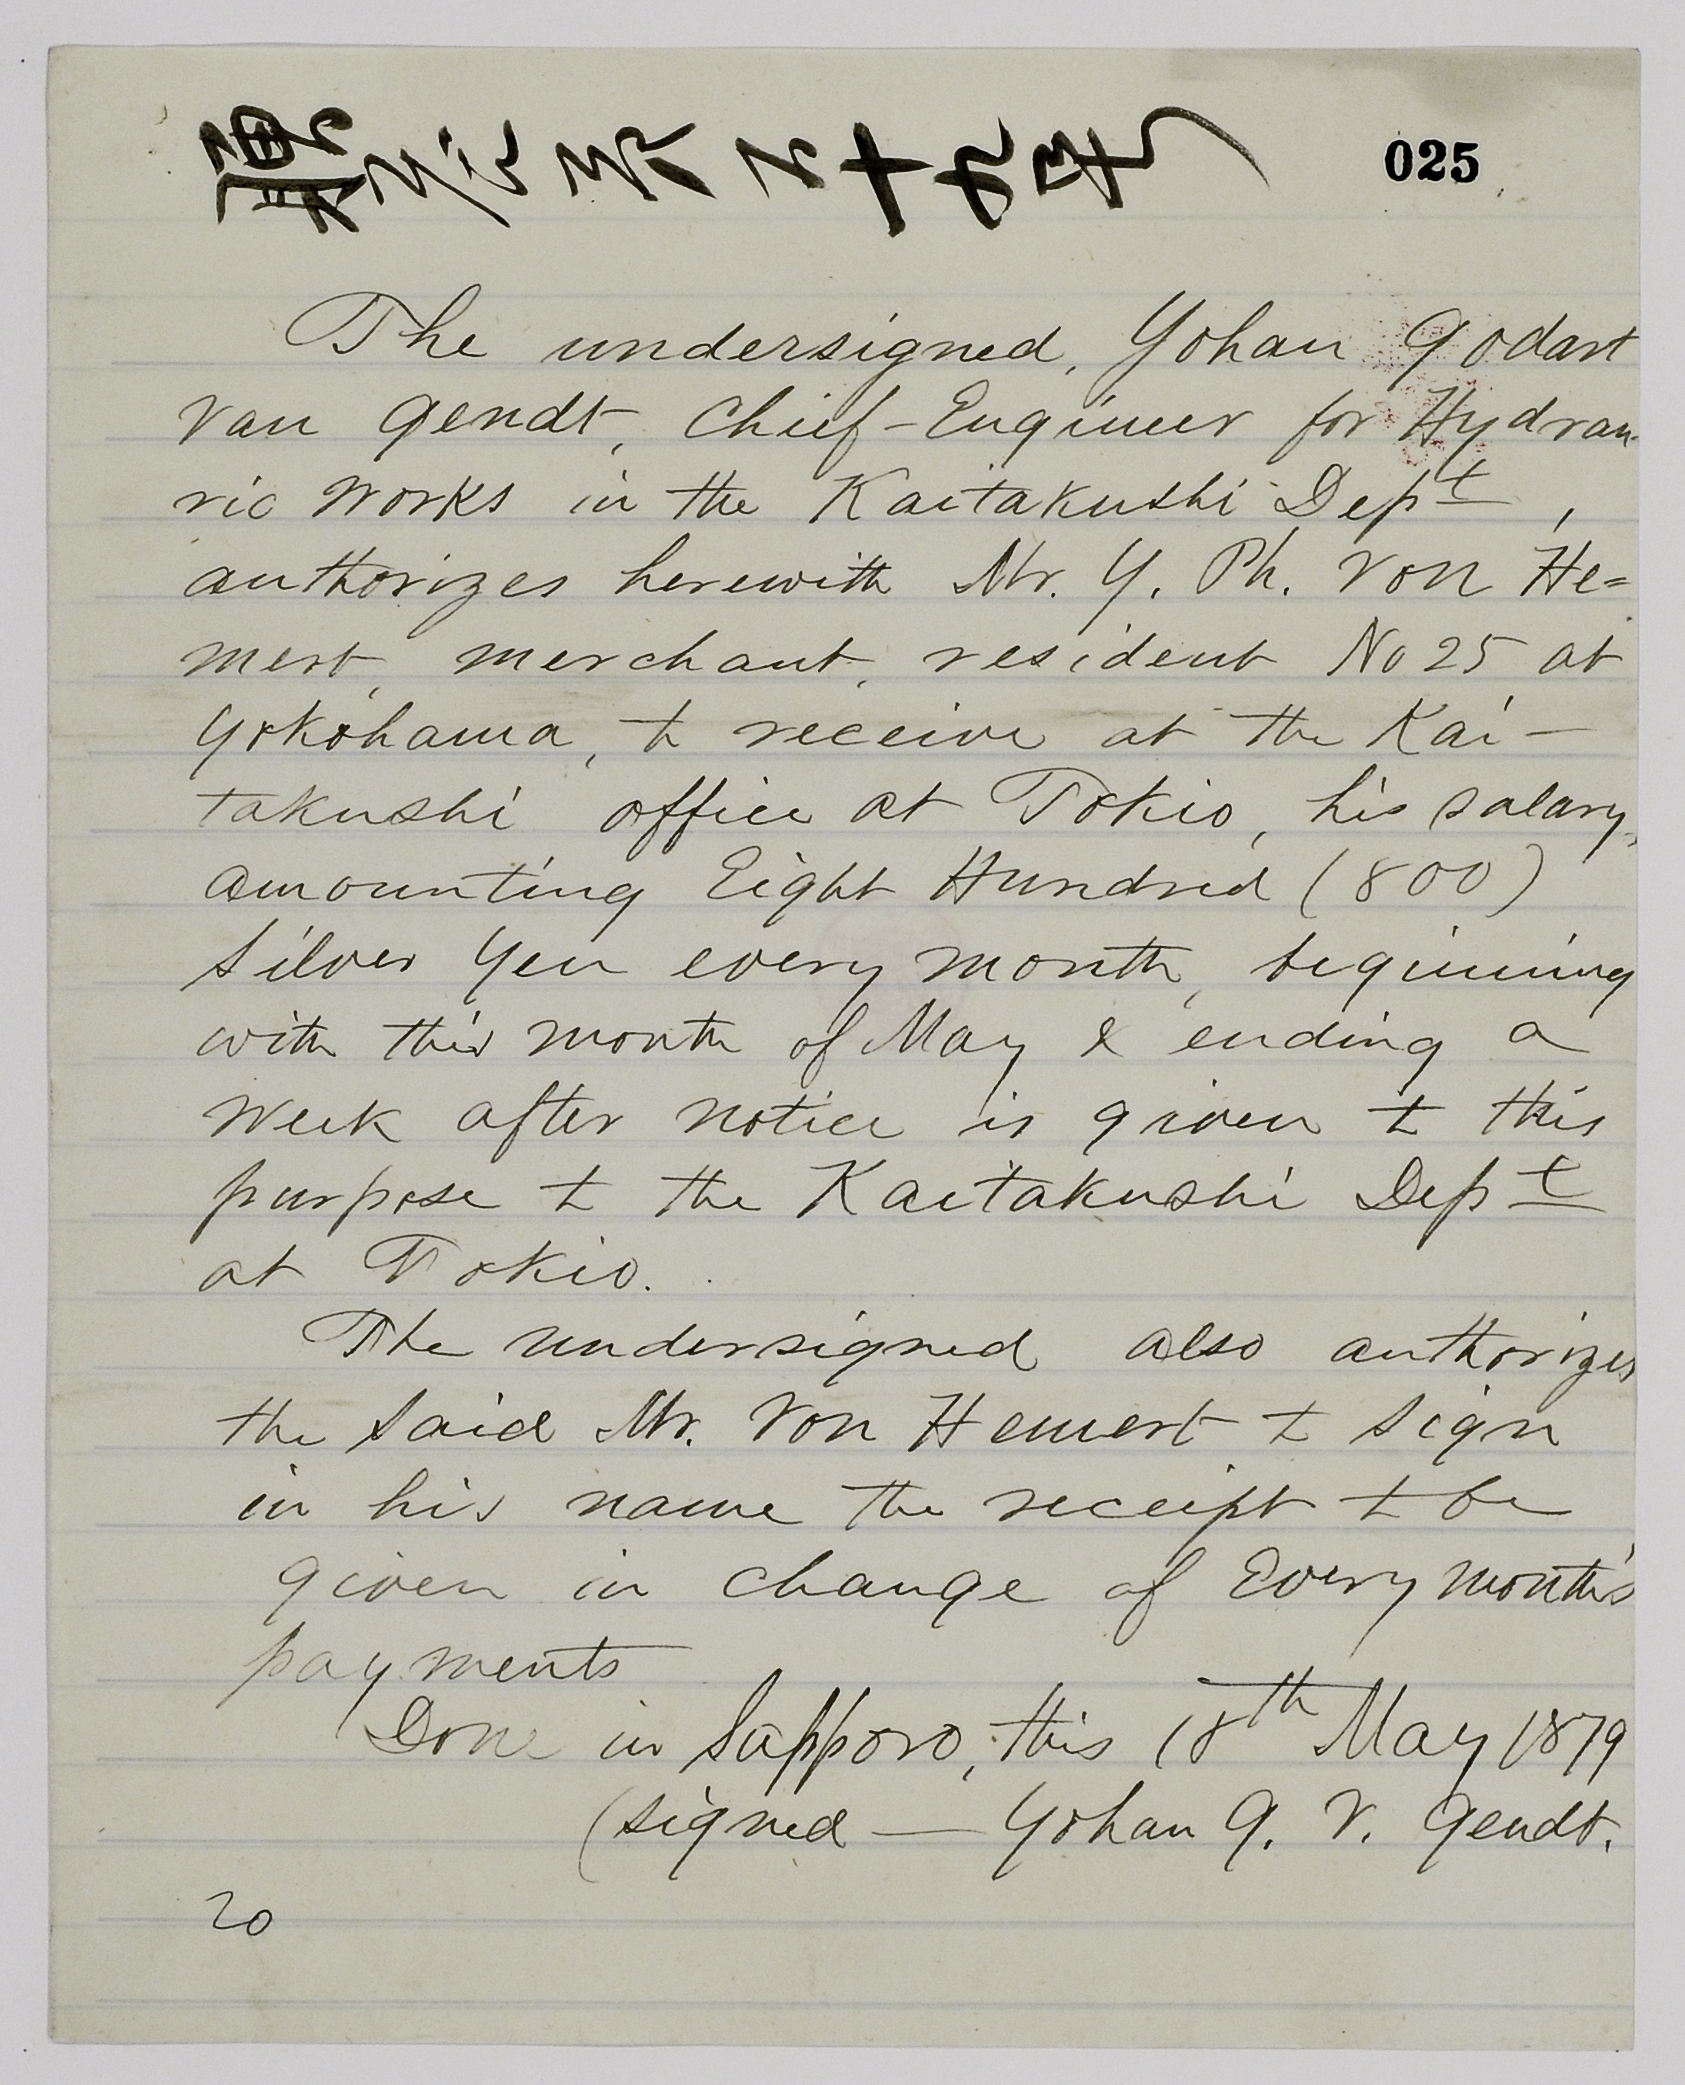 025
The undersigned, Yohan Godart
van Gendt, Chief-Engineer for Hydrau
ric Works in the Kaitakushi Dept,
authorizes herewith Mr. Y. Ph. Von He=
mert, merchant, resident No 25 at
Yokohama, to receive at the Kai-
takushi office at Tokio, his salary,
amounting Eight Hundred (800)
Silver Yen every month, beginning
with this month of May & ending a
week after notice is given to this
purpose to the Kaitakushi Dept
at Tokio.
The undersigned also authorizes
the said Mr. Von Hemert to sign
in his name the receipt to be
given in change of Every month's
payments
Done in Sapporo, this 18th May 1879
(signed — Yohan G. V. Gendt.
20